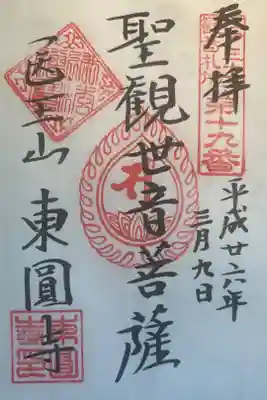 第十九番
奉拝
平成廿六年
三月九日
聖観世音菩薩
医王山 東圓寺